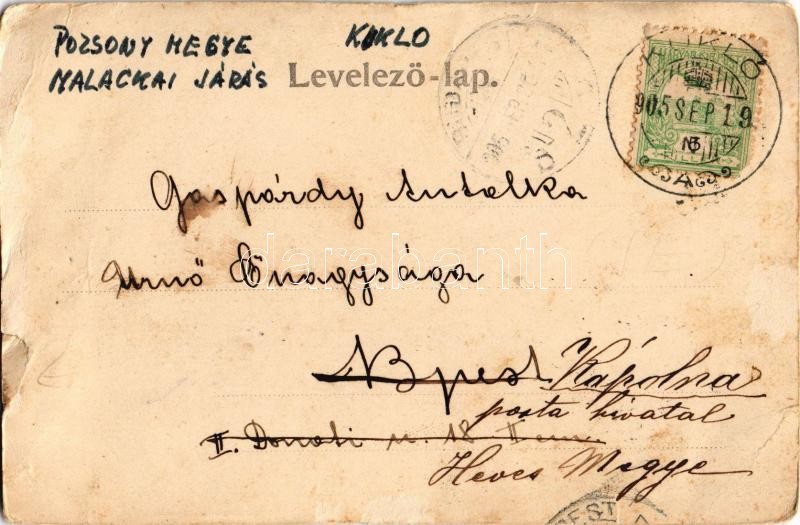 POZSONY MEGYE KUKLO
MALACKAI JÁRÁS Levelező-lap.
905 SEP 19
Gaspárdy Antalka
Urnő Őnagysága
Bpest Kápolna
posta hivatal
II. Donati u. 18 II em.
Heves Megye
darabanth